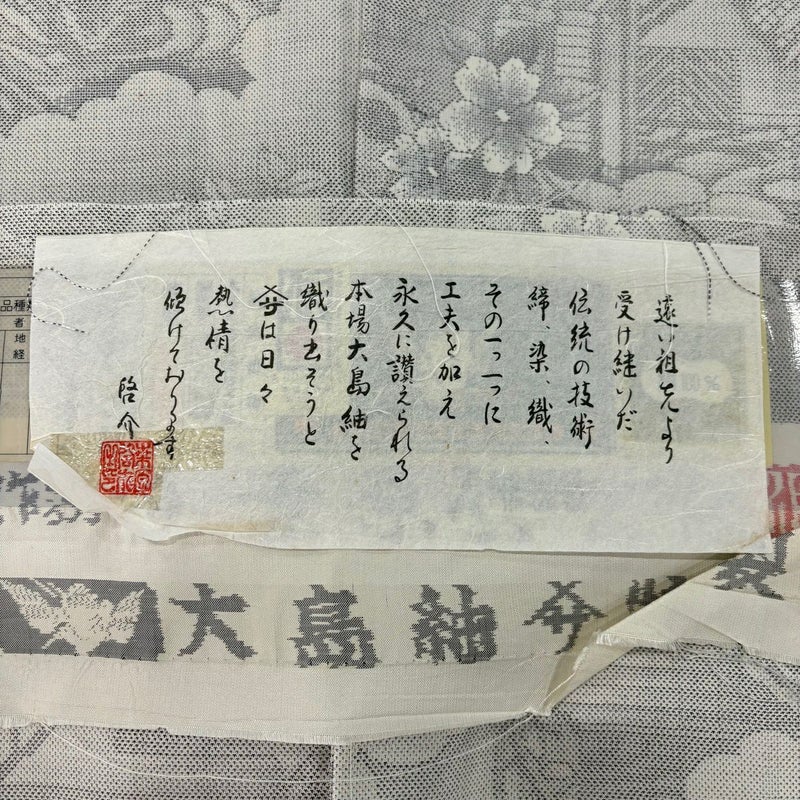 遠い祖先より
受け継いだ
伝統の技術
締、染、織、
その一つ一つに
工夫を加え
永久に讃えられる
本場大島紬を
織り出そうと
は日々
熱情を
傾けております。
啓介
品種
者
地
経
大島紬